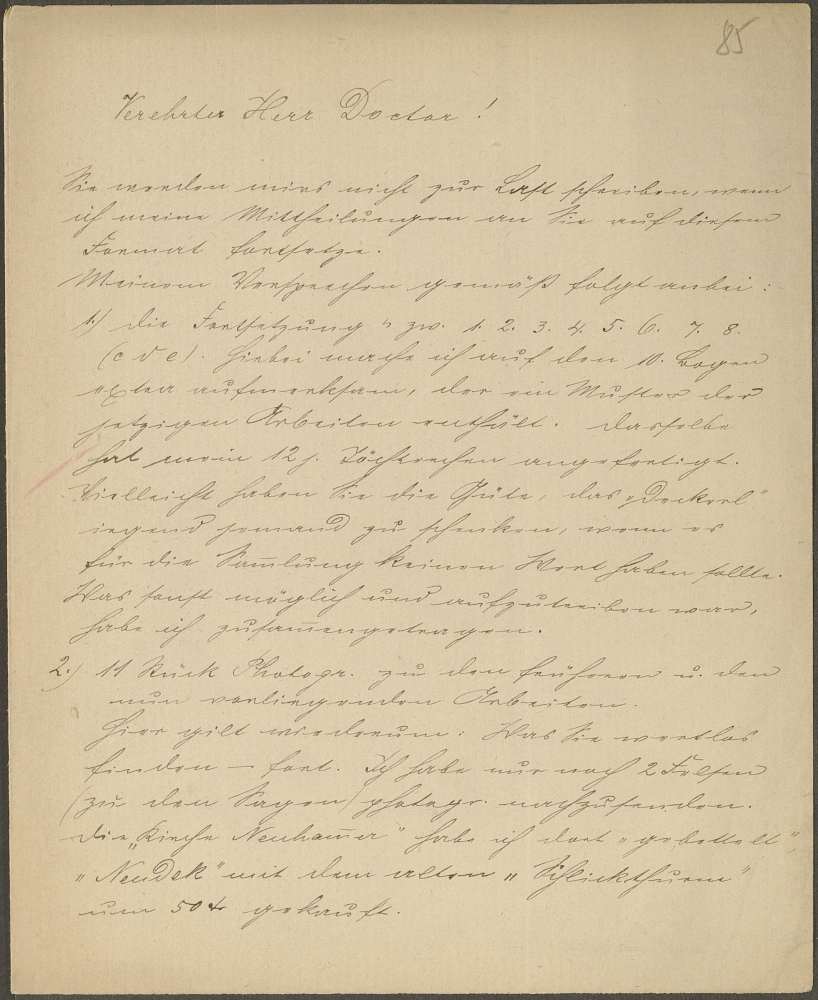 85
Verehrter Herr Doctor!
Sie werden mirs nicht zur Last schreiben, wenn
ich meine Mittheilungen an Sie auf diesem
Format fortsetze.
Meinem Versprechen gemäß folgt anbei:
1.) die Fortsetzung u. zw. 1. 2. 3. 4. 5. 6. 7. 8.
(c d e). Hiebei mache ich auf den 10. Bogen
extra aufmerksam, der ein Muster der
jetzigen Arbeiten enthält. Dasselbe
hat mein 12 j. Töchterchen angefertigt.
Vielleicht haben Sie die Güte, das „Deckerl“
irgend jemand zu schenken, wenn es
für die Sam̅lung keinen Wert haben sollte.
Was sonst möglich und aufzutreiben war,
habe ich zusam̅engetragen.
2.) 11 Stück Photogr. zu den früheren u. den
nun vorliegenden Arbeiten.
Hier gilt wiederum: Was Sie wertlos
finden – fort. Ich habe nur noch 2 Felsen
(zu den Sagen) photogr. nachzusenden.
Die „Kirche Neuham̅er“ habe ich dort „gebettelt“,
„Neudek“ mit dem alten „Schlickthurm“
um 50 kr gekauft.